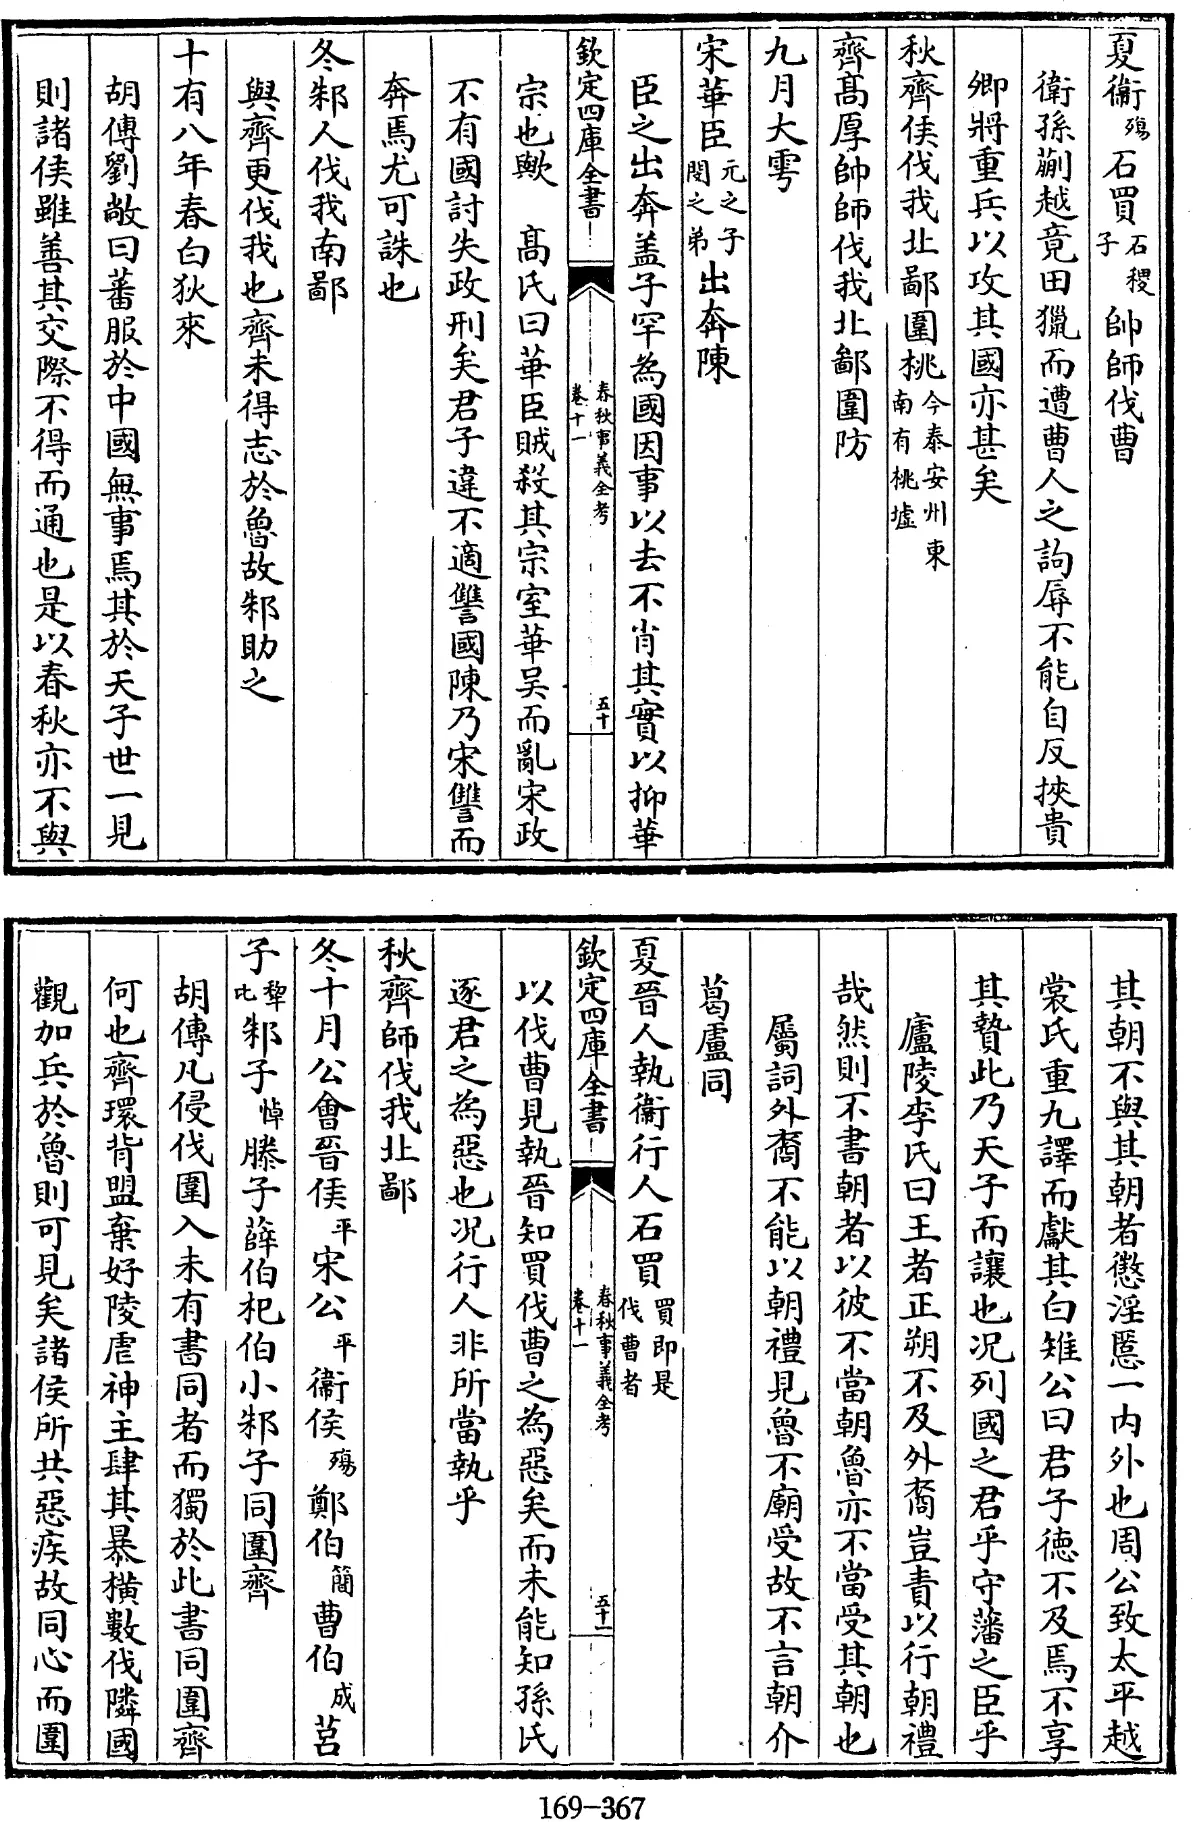 夏衞殤石買石稷子帥師伐曹
衛孫蒯越竟田獵而遭曹人之訽辱不能自反挾貴
卿將重兵以攻其國亦甚矣
秋齊侯伐我北鄙圍桃今泰安州東南有桃墟
齊髙厚帥師伐我北鄙圍防
九月大雩
宋華臣元之子閱之弟出奔陳
臣之出奔盖子罕為國因事以去不肖其實以抑華
欽定四庫全書
春秋事義全考
卷十一
五十
宗也歟　髙氏曰華臣賊殺其宗室華吴而亂宋政
不有國討失政刑矣君子違不適讐國陳乃宋讐而
奔焉尤可誅也
冬邾人伐我南鄙
與齊更伐我也齊未得志於魯故邾助之
十有八年春白狄來
胡傳劉敞曰蕃服於中國無事焉其於天子世一見
則諸侯雖善其交際不得而通也是以春秋亦不與
其朝不與其朝者懲淫慝一内外也周公致太平越
裳氏重九譯而獻其白雉公曰君子徳不及焉不享
其贄此乃天子而讓也况列國之君乎守藩之臣乎
廬陵李氏曰王者正朔不及外裔豈責以行朝禮
哉然則不書朝者以彼不當朝魯亦不當受其朝也
屬詞外裔不能以朝禮見魯不廟受故不言朝介
葛盧同
夏晉人執衞行人石買買即是伐曹者
欽定四庫全書
春秋事義全考
卷十一
五十一
以伐曹見執晉知買伐曹之為惡矣而未能知孫氏
逐君之為惡也况行人非所當執乎
秋齊師伐我北鄙
冬十月公會晉侯平宋公平衞侯殤鄭伯簡曹伯成莒
子犂𠤎邾子悼滕子薛伯杞伯小邾子同圍齊
胡傳凡侵伐圍入未有書同者而獨於此書同圍齊
何也齊環背盟棄好陵虐神主肆其暴橫數伐隣國
觀加兵於魯則可見矣諸侯所共惡疾故同心而圍
169-367